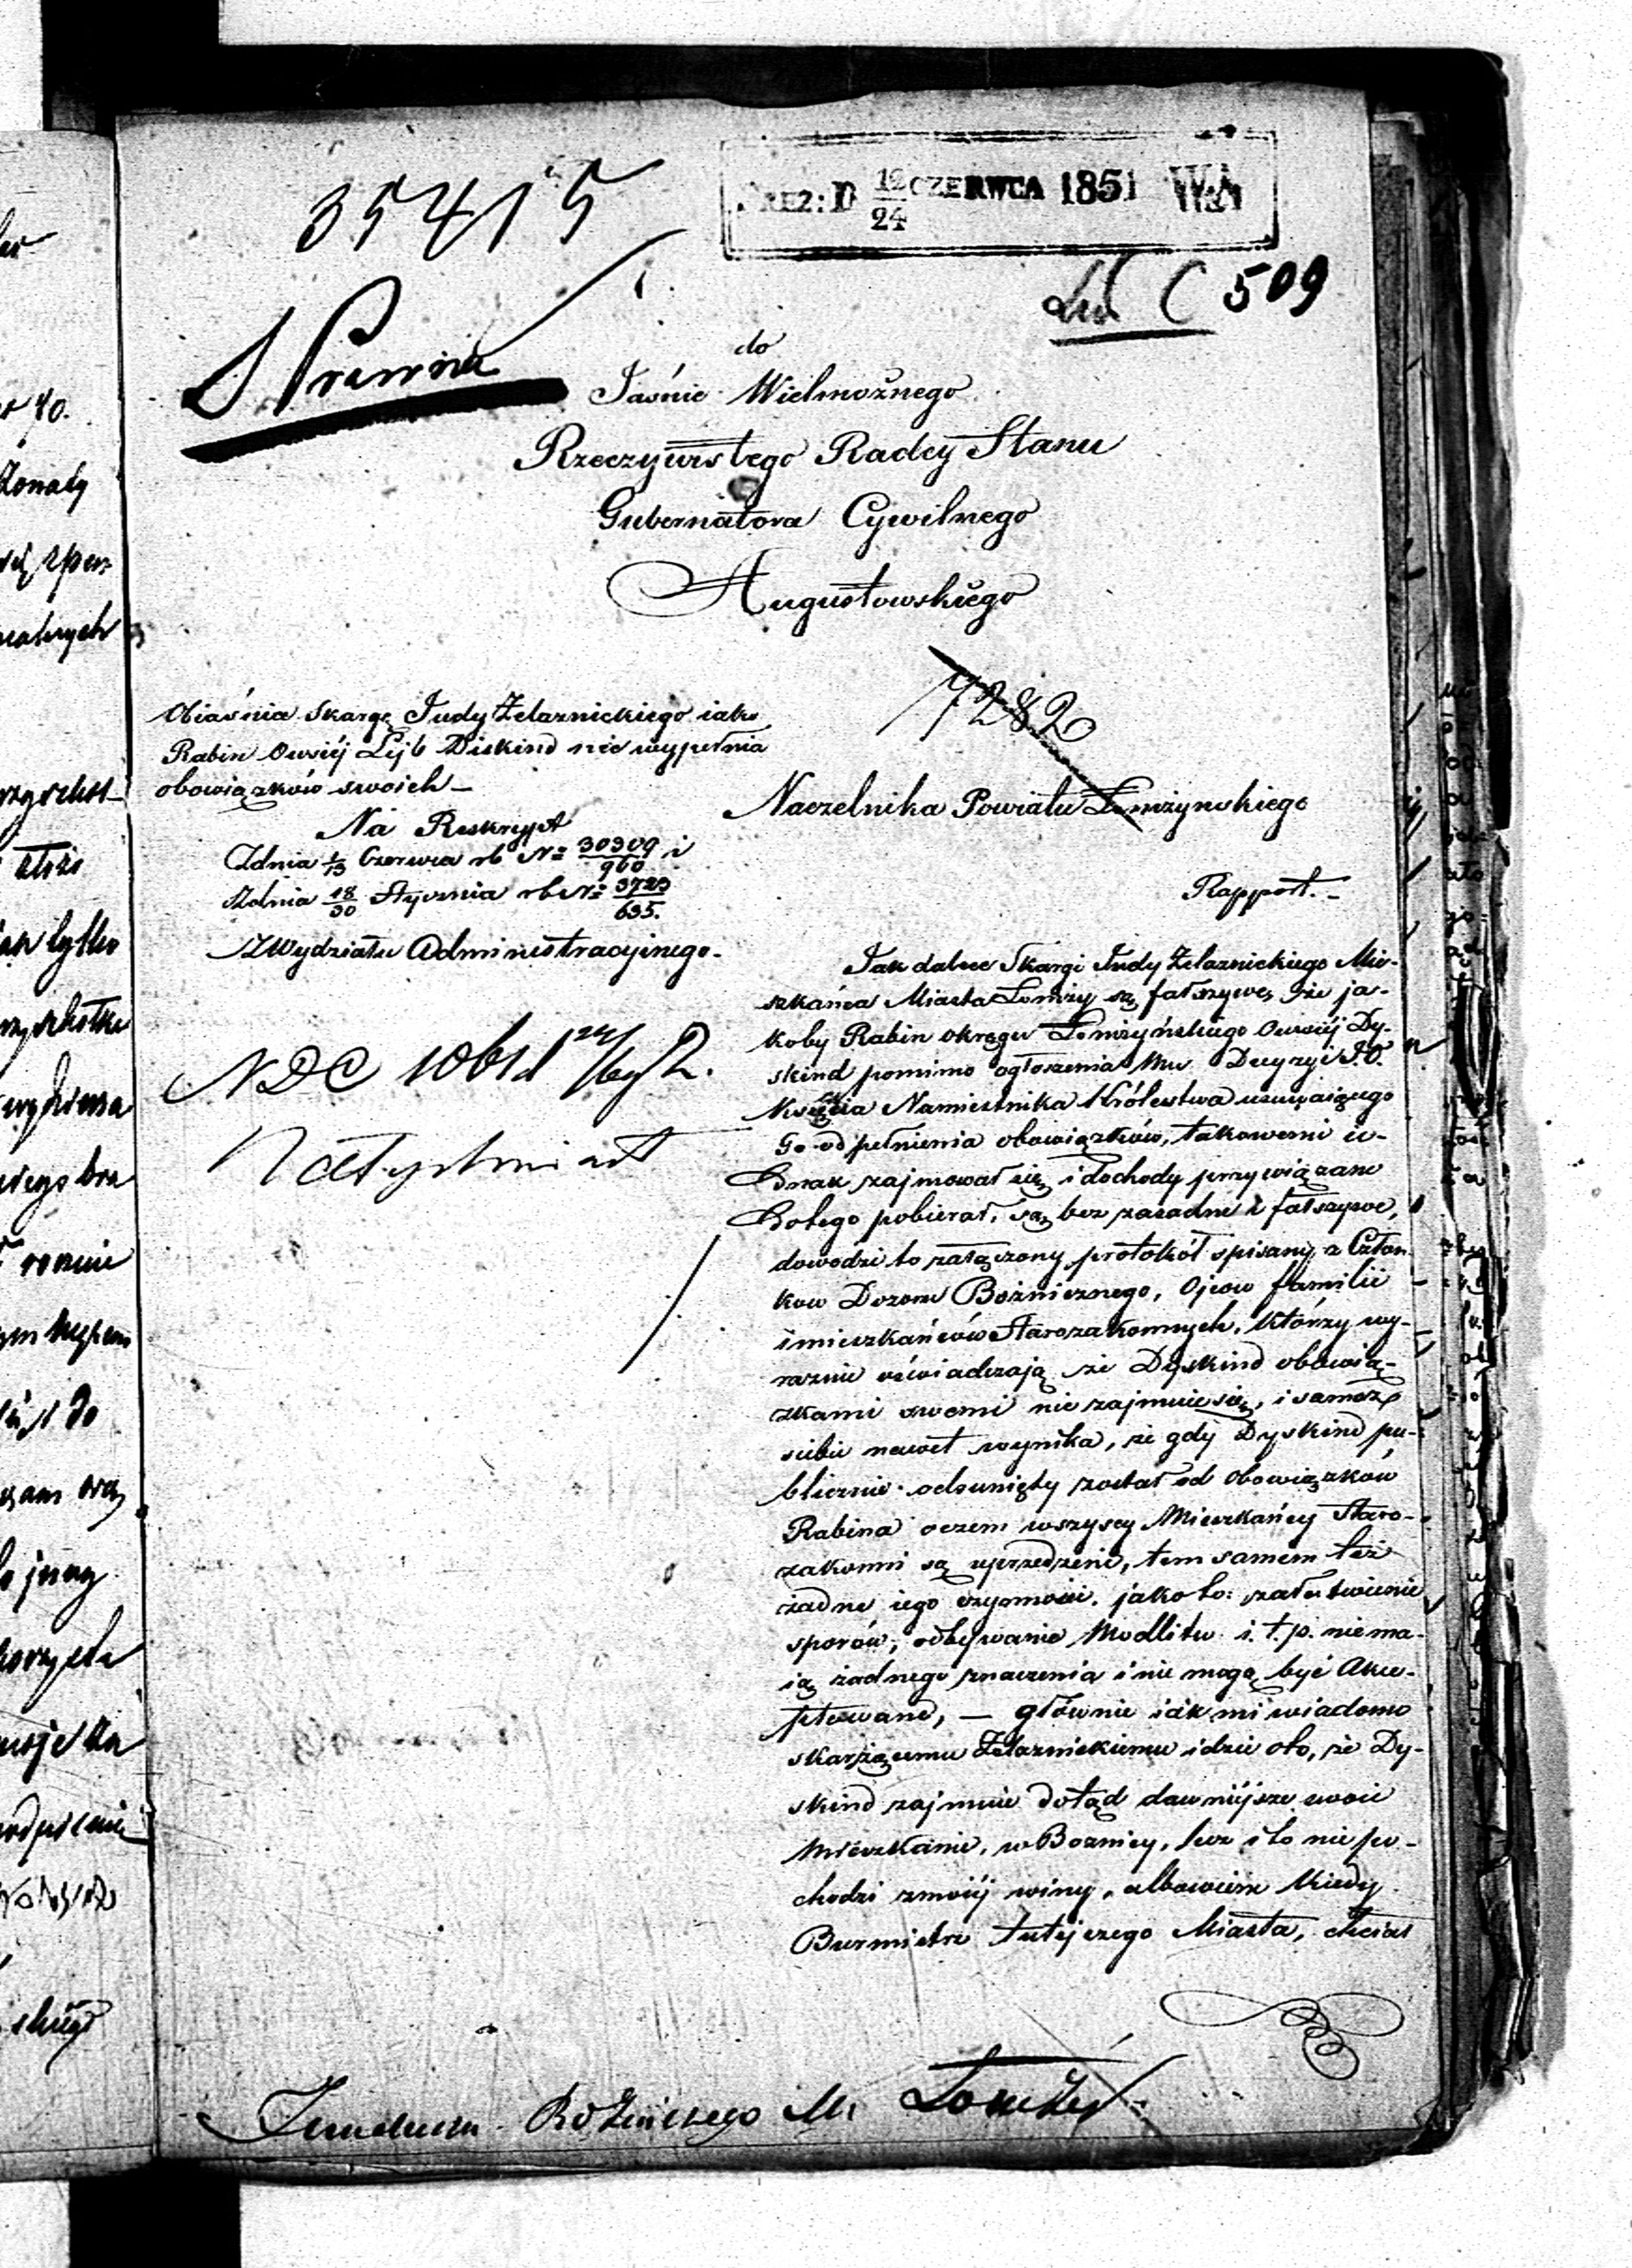 35415
PREZ: D 12/24 CZERWCA 1851 WA
C 509
do
Jaśnie Wielmożnego
Rzeczywistego Radcy Stanu
Gubernatora Cywilnego
Augustowskiego
7282
Obiaśnia Skargę Judy Żelaznickiego iako
Rabin Owsiéj Lejb Diskind nie wypełnia
obowiązków swoich –
Na Reskrypt
Zdnia 1/13 Czerwca rb No 30309/960 i
Zdnia 18/30 Stycznia rb No 3723/635.
Z Wydziału Administracyjnego.
Natychmiast
Naczelnika Powiatu Łomżyńskiego
Rapport. –
Jak dalece Skargi Judy Żelaznickiego Mie-
szkańca Miasta Łomży są fałszywe, że ja-
koby Rabin okręgu Łomżyńskiego Owsiéj Dy-
skind pomimo ogłoszenia Mu Decyzyi J.O.
Księcia Namiestnika Królestwa usuwaiącego
Go od pełnienia obowiązków, takowemi ie-
dnak zajmował się i dochody przywiązane
dotego pobierał, są bezzasadne i fałszywe,
dowodzi to załączony protokół spisany z Człon-
kow Dozoru Bożniczego, Ojcow familii
i mieszkańców Starozakonnych, którzy wy-
raznie oświadczają że Dyskind obowią-
zkami swemi nie zajmuie się, i samo z
siebie nawet wynika, że gdy Dyskind pu-
blicznie odsunięty został od Obowiązków
Rabina oczem wszyscy Mieszkańcy Staro-
zakonni są uprzedzeni, tem samem też
żadne iego czynności, jako to: załatwienie
sporów, odbywanie Modlitw i. t. p. niema-
ią żadnego znaczenia i nie mogą być Akce-
ptowane, — głównie iak mi wiadomo
skarżącemu Żelaznickiemu idzie oto, że Dy-
skind zajmuie dotąd dawniéjsze swoie
mieszkanie, w Boznicy, lecz i to nie po-
chodzi zmoiéj winy, albowiem kiedy
Burmistrz tutéjszego Miasta, chciał
Bożniczego M. Łomży